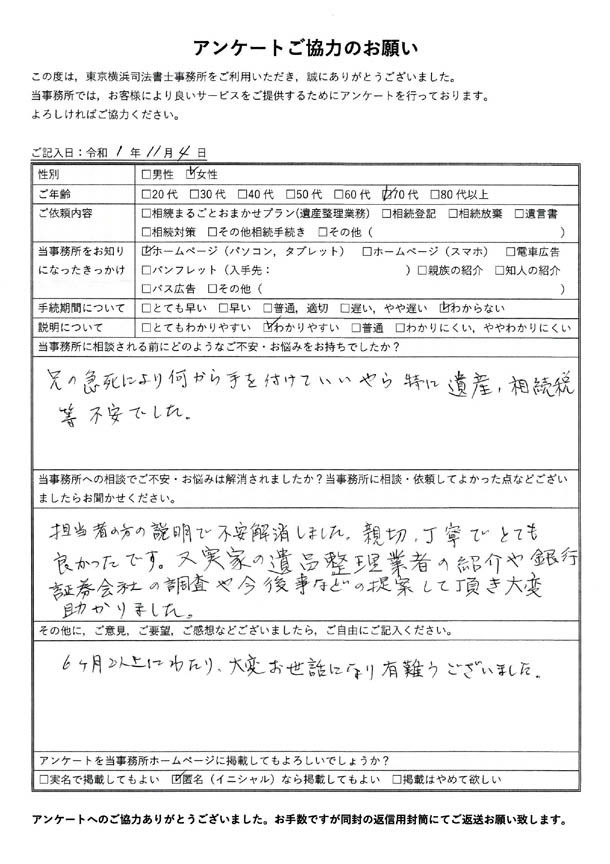 アンケートご協力のお願い
この度は，東京横浜司法書士事務所をご利用いただき，誠にありがとうございました。
当事務所では，お客様により良いサービスをご提供するためにアンケートを行っております。
よろしければご協力ください。
ご記入日：令和 1 年 11 月 4 日
性別 □男性 ☑女性
ご年齢 □20代 □30代 □40代 □50代 □60代 ☑70代 □80代以上
ご依頼内容 □相続まるごとおまかせプラン(遺産整理業務) □相続登記 □相続放棄 □遺言書
□相続対策 □その他相続手続き □その他（ ）
当事務所をお知り ☑ホームページ（パソコン，タブレット） □ホームページ（スマホ） □電車広告
になったきっかけ □パンフレット（入手先： ）□親族の紹介 □知人の紹介
□バス広告 □その他（ ）
手続期間について □とても早い □早い □普通，適切 □遅い，やや遅い ☑わからない
説明について □とてもわかりやすい ☑わかりやすい □普通 □わかりにくい，ややわかりにくい
当事務所に相談される前にどのようなご不安・お悩みをお持ちでしたか？
兄の急死により何から手を付けていいやら 特に 遺産，相続税
等 不安でした。
当事務所への相談でご不安・お悩みは解消されましたか？当事務所に相談・依頼してよかった点などござい
ましたらお聞かせください。
担当者の方の説明で不安解消しました。親切、丁寧でとても
良かったです。又実家の遺品整理業者の紹介や銀行
証券会社の調査や今後事などの提案して頂き大変
助かりました。
その他に，ご意見，ご要望，ご感想などございましたら，ご自由にご記入ください。
6ヶ月以上にわたり、大変お世話になり有難うございました。
アンケートを当事務所ホームページに掲載してもよろしいでしょうか？
□実名で掲載してもよい ☑匿名（イニシャル）なら掲載してもよい □掲載はやめて欲しい
アンケートへのご協力ありがとうございました。お手数ですが同封の返信用封筒にてご返送お願い致します。